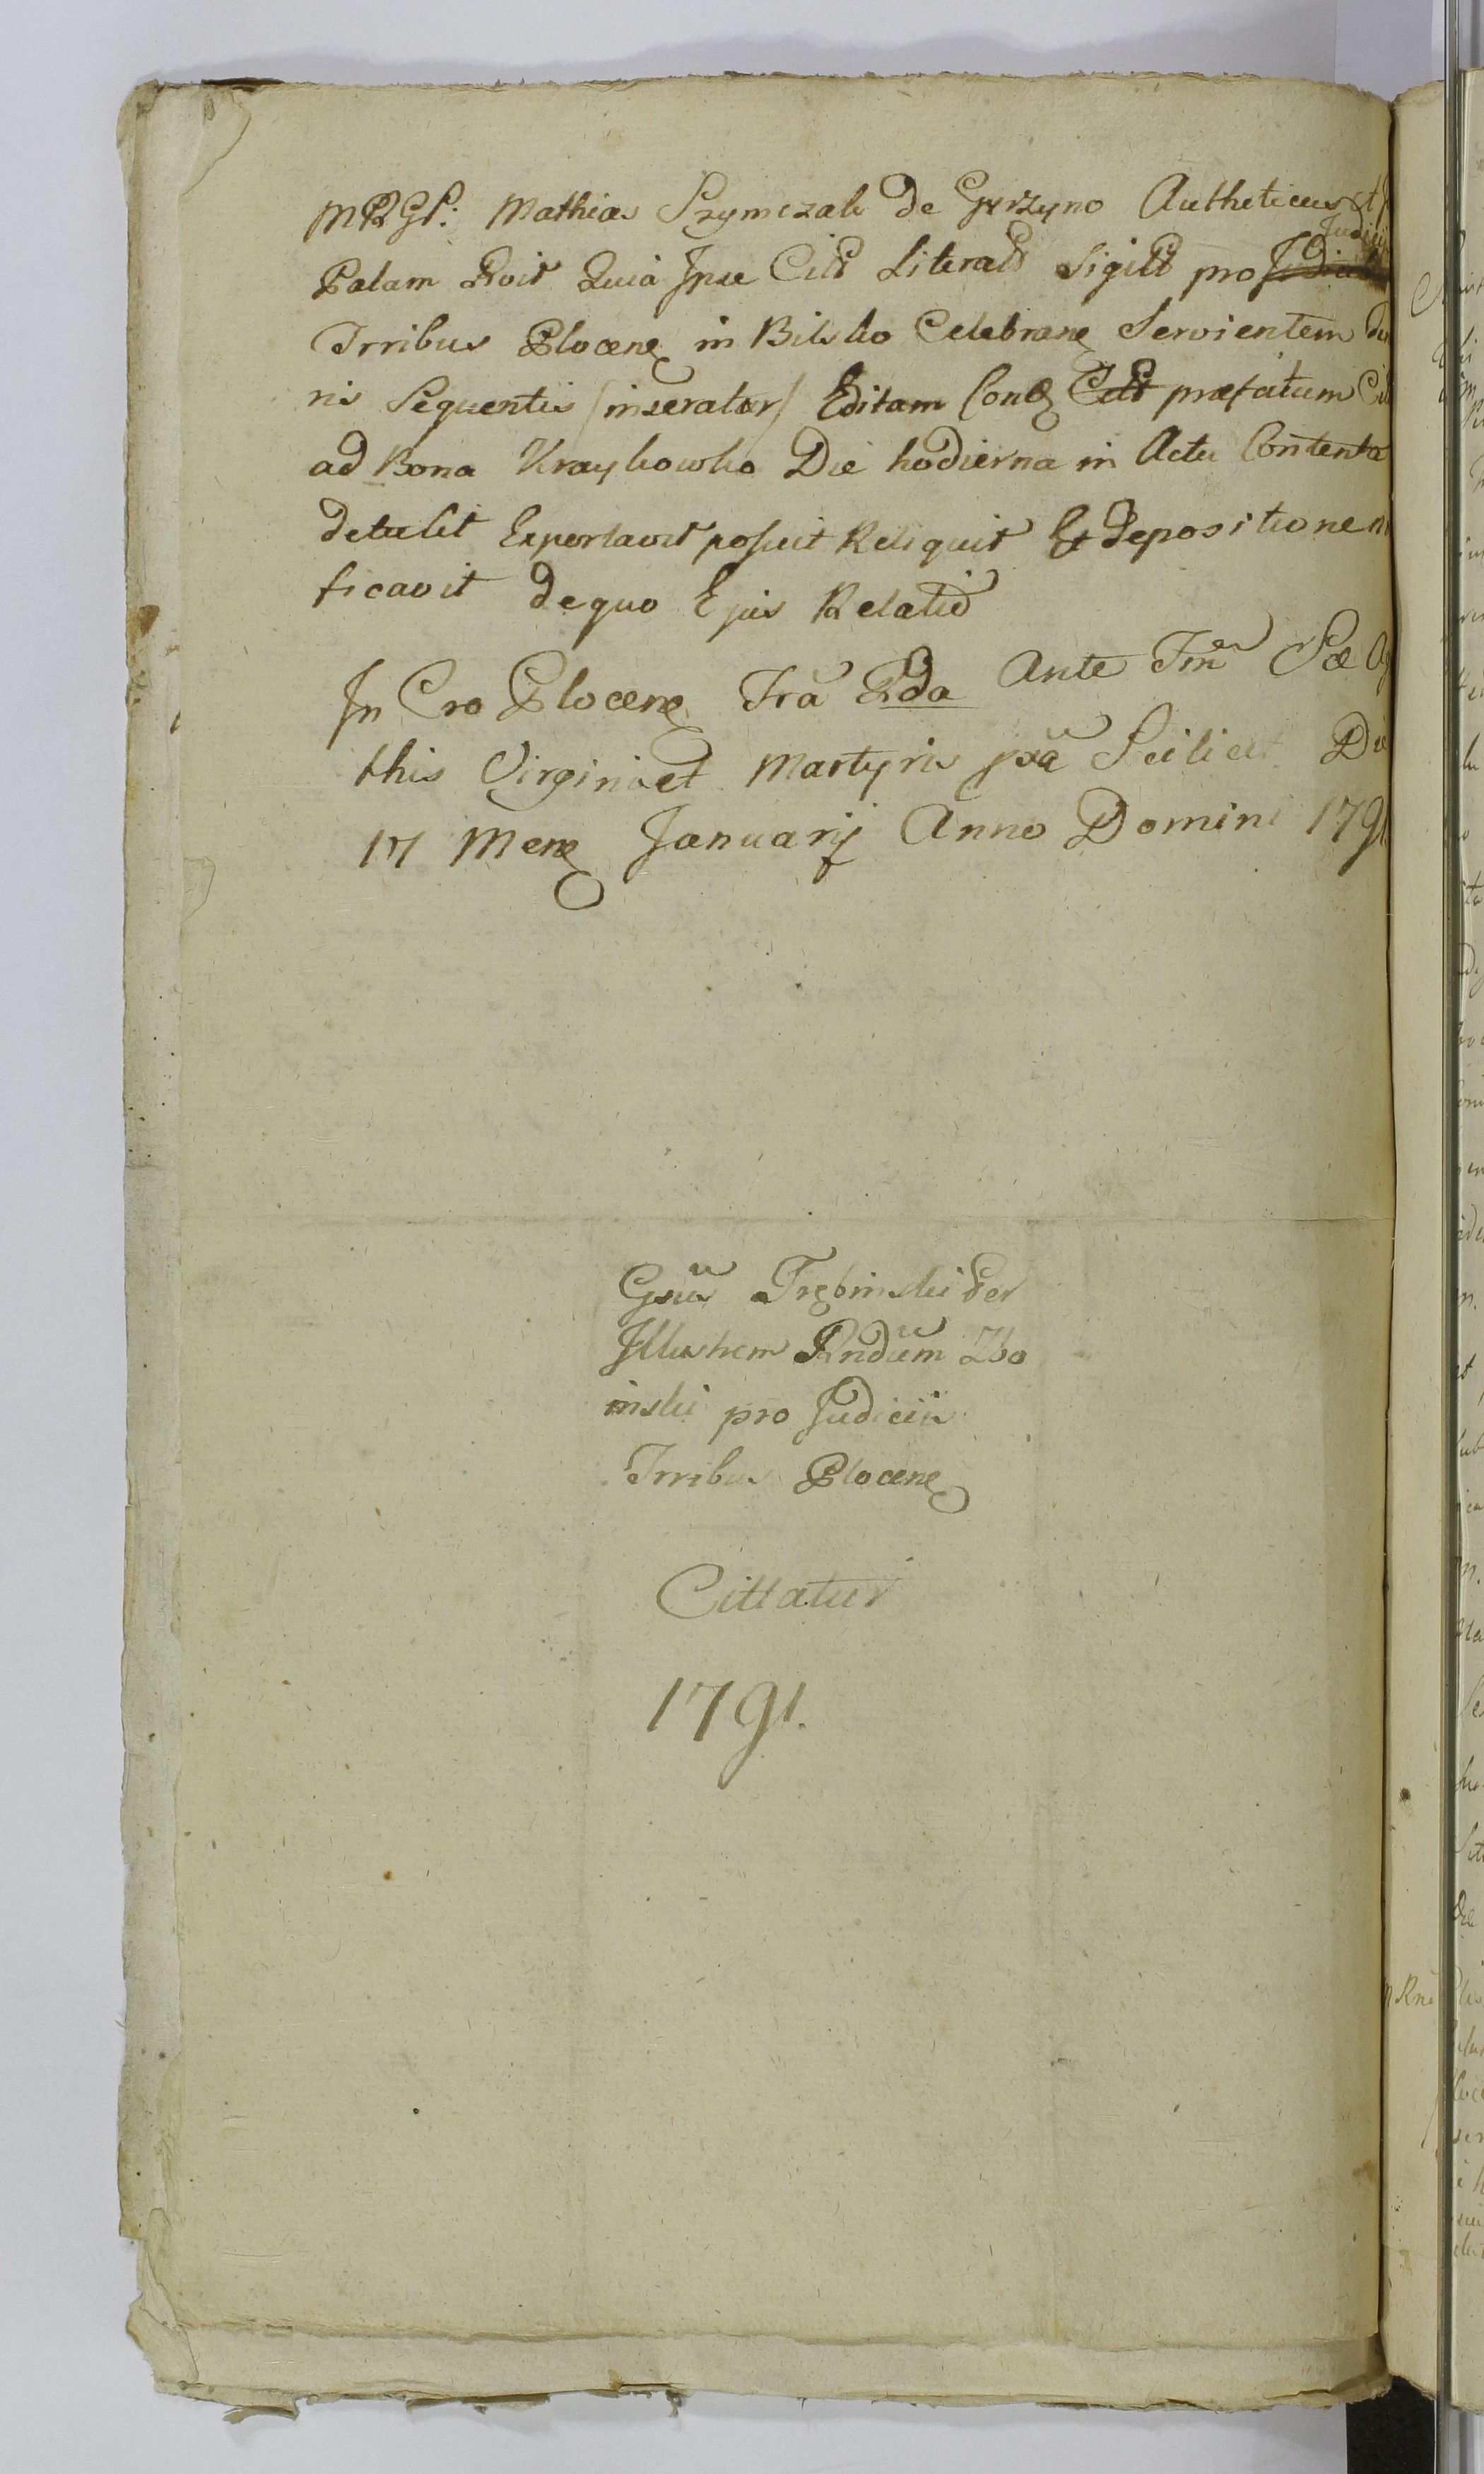 MRGS: Mathias Szymczak de Gorzyno Autheticus et
Palam Roit Quia Ipse Citt Literatt Sigitt pro Judicii
Trribus Plocens in Bilsko Celebrans Servientem
nis Sequentis /inserator/ Editam Contz Citt præfatum
ad Bona Kraykowko Die hodierna in Actu Contenta
detulit Exportavit posuit Reliquit Et depositionem
ficavit de quo Ejus Relatio
In Cro Plocens Fra Rda Ante Fm Sæ Ag
this Virginis et Martyris pxa Scilicet Die
17 Mens Januarij Anno Domini 1791
Gsus Trębinski Per
Illustrem Rndum Zbo
inski pro Judiciis
Trribus Plocens
Cittatur
1791.